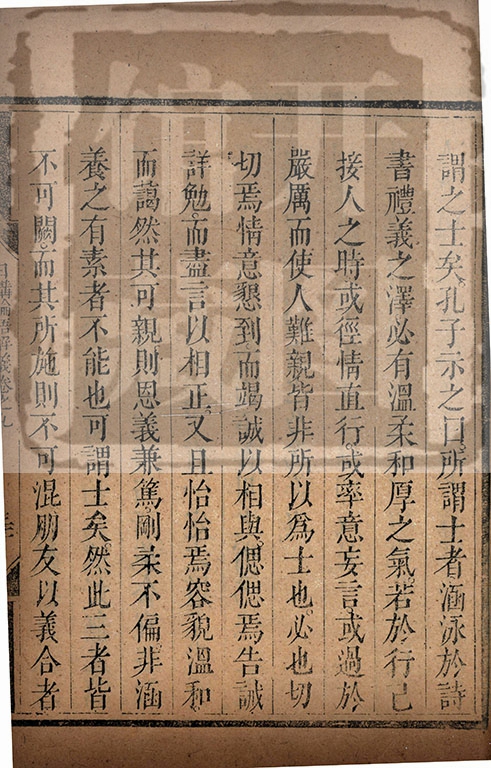 謂之士矣孔子示之曰所謂士者涵泳於詩
書禮義之澤必有溫柔和厚之氣若於行己
接人之時或徑情直行或率意妄言或過於
嚴厲而使人難親皆非所以爲士也必也切
切焉情意懇到而竭誠以相與偲偲焉告誡
詳勉而盡言以相正又且怡怡焉容貌溫和
而藹然其可親則恩義兼篤剛柔不偏非涵
養之有素者不能也可謂士矣然此三者皆
不可闕而其所施則不可混朋友以義合者